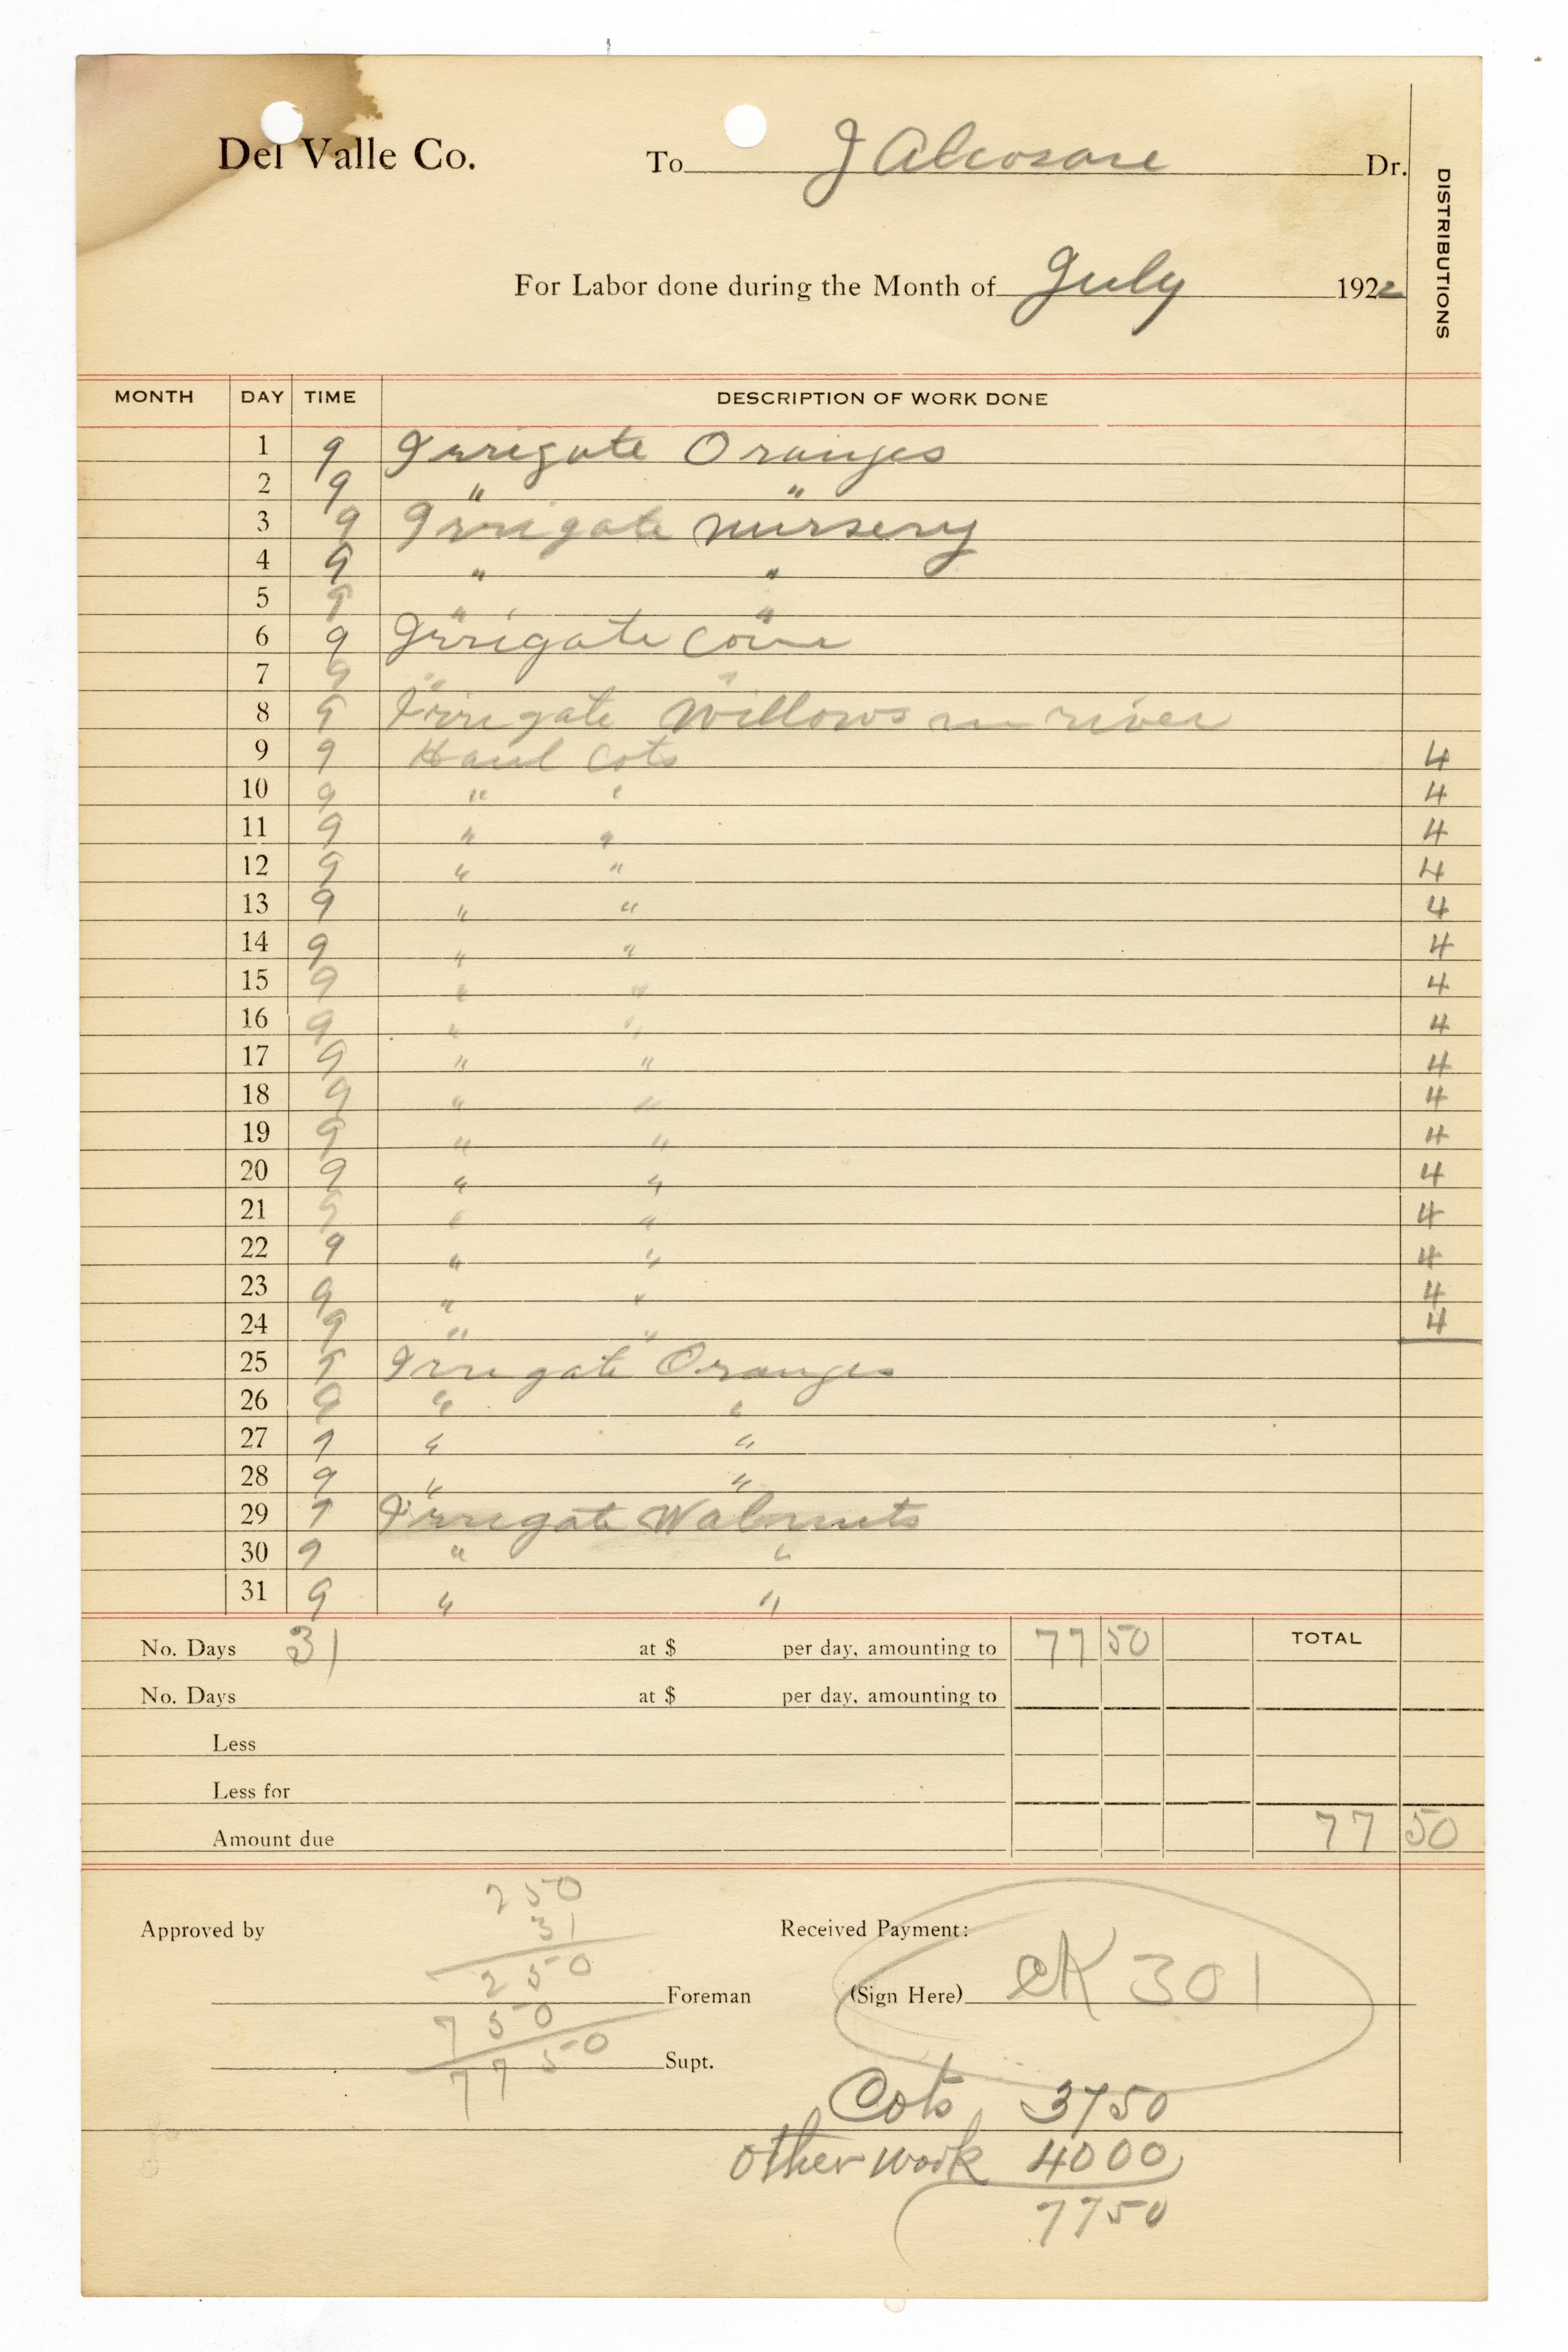 Del Valle Co. To J Alcosare Dr.
DISTRIBUTIONS
For Labor done during the Month of July 1922
MONTH DAY TIME DESCRIPTION OF WORK DONE
1 9 Irrigate Oranges
2 9 " "
3 9 Irrigate nursery
4 9 " "
5 9 " "
6 9 Irrigate
7 9 " "
8 9 Irrigate Willows in river
9 9 Haul Cots 4
10 9 " " 4
11 9 " " 4
12 9 " " 4
13 9 " " 4
14 9 " " 4
15 9 " " 4
16 9 " " 4
17 9 " " 4
18 9 " " 4
19 9 " " 4
20 9 " " 4
21 9 " " 4
22 9 " " 4
23 9 " " 4
24 9 " " 4
25 9 Irrigate Oranges
26 9 " "
27 9 " "
28 9 " "
29 9 Irrigate Walnuts
30 9 " "
31 9 " "
No. Days 31 at $ per day, amounting to 77 50 TOTAL
No. Days at $ per day, amounting to
Less
Less for
Amount due 77 50
250
Approved by 31 Received Payment:
250
Foreman (Sign Here) ck 301
750
7750 Supt.
Cots 3750
other work 4000
7750